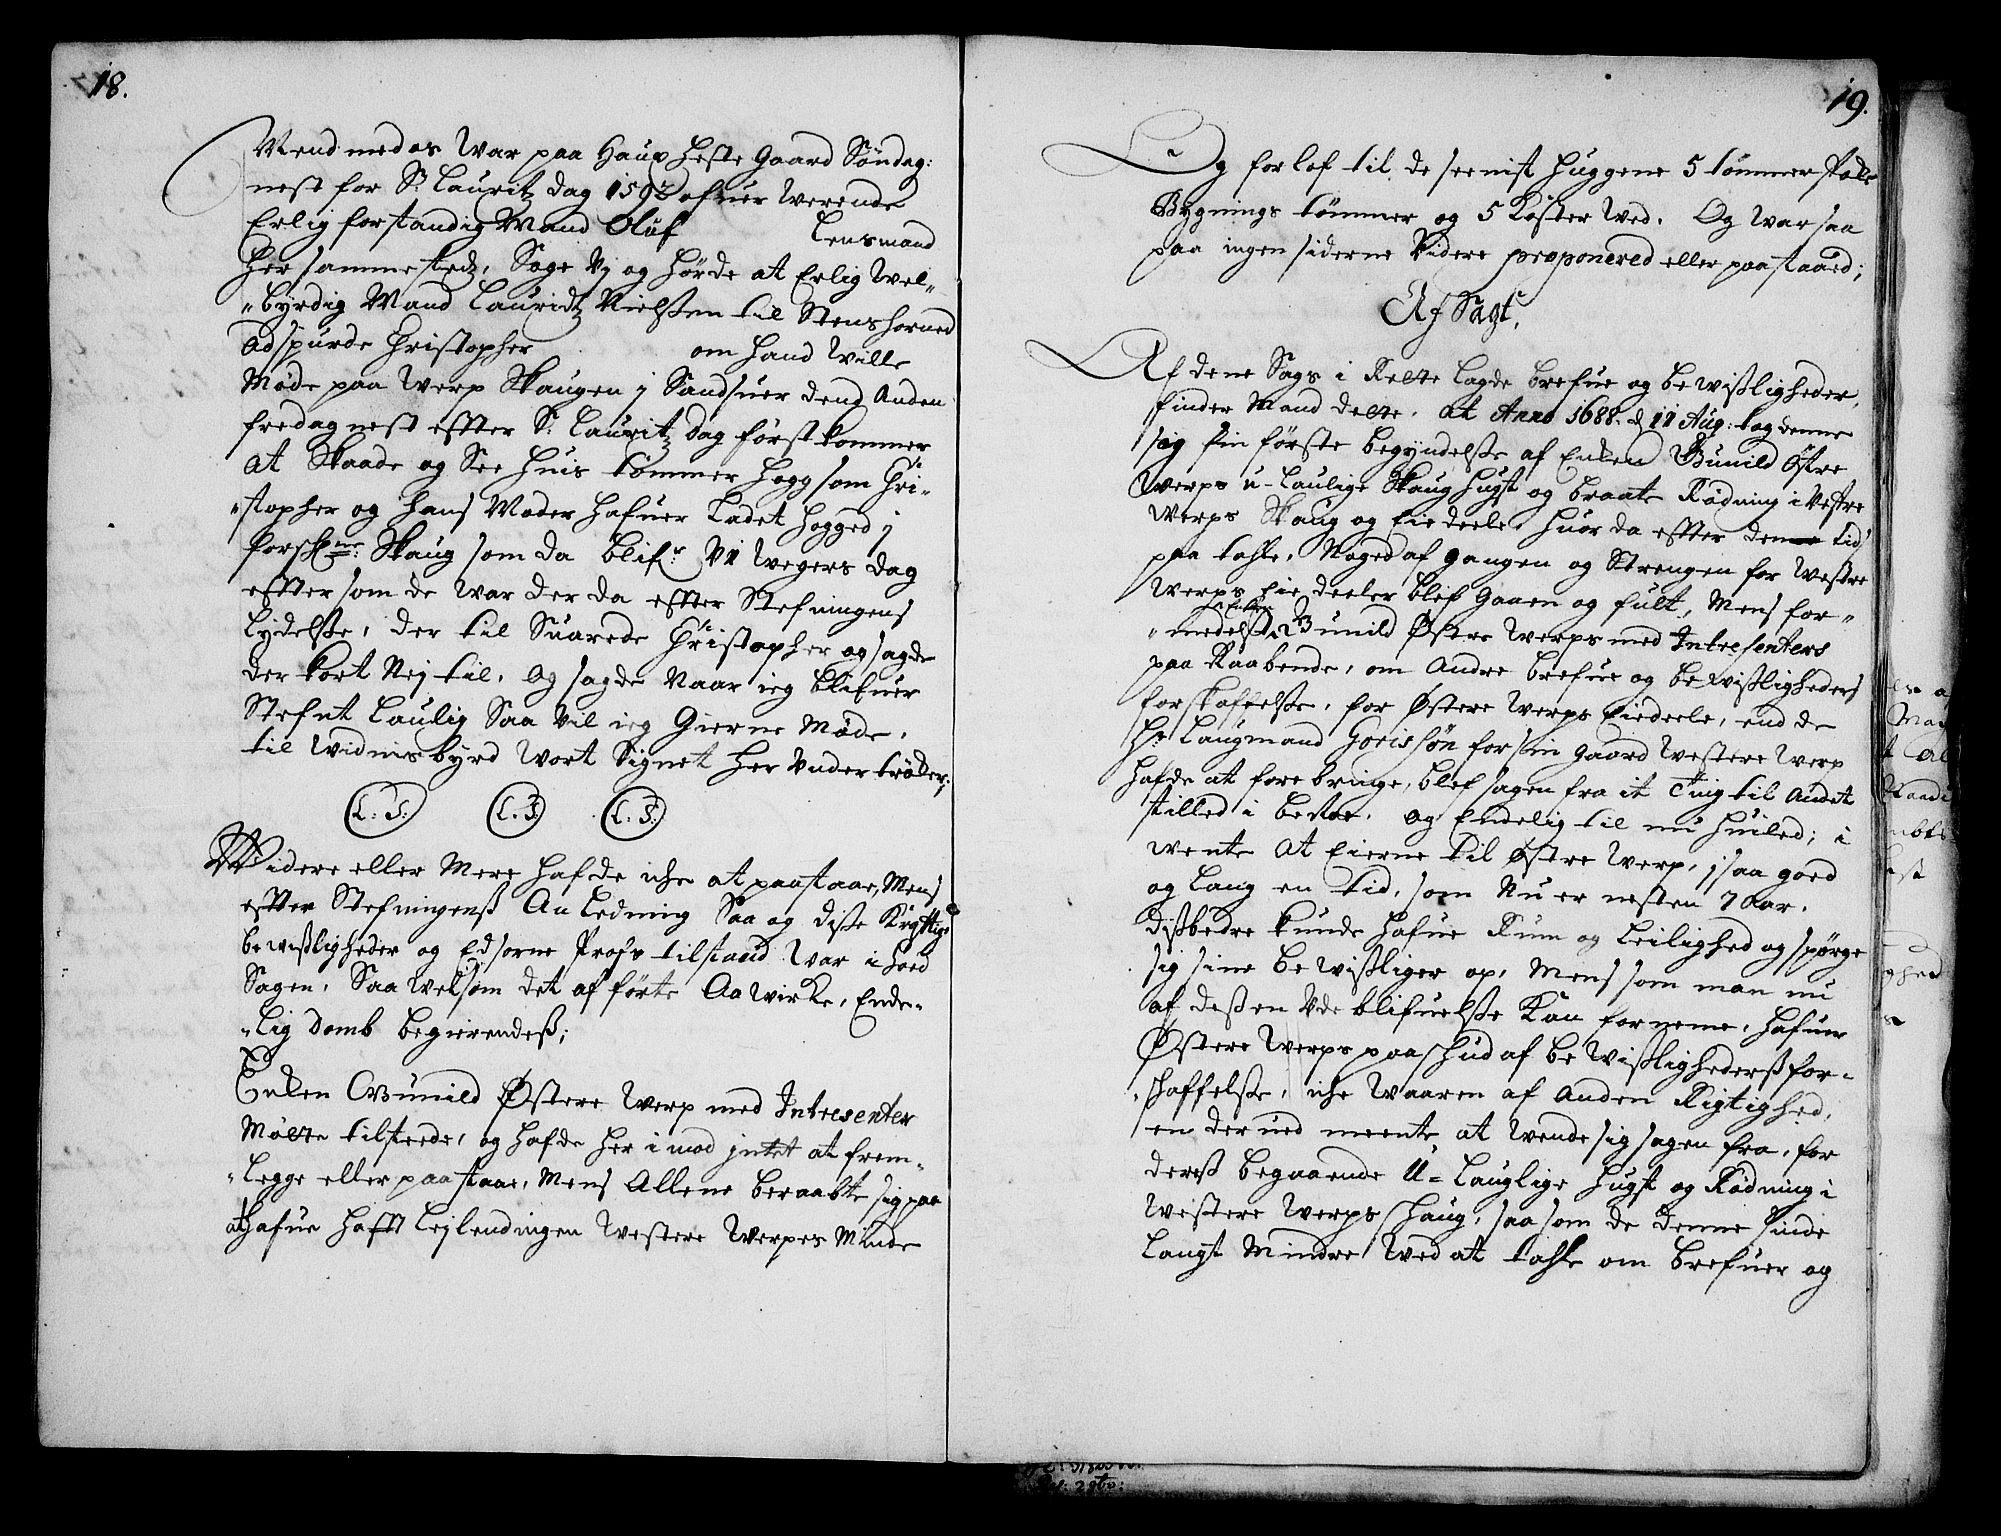 18.
Mend med os War paa Haux Heste Gaard Söndag:
nest for S: Lauritz dag 1592 ofuer Werende
Erlig forstandig Mand Oluf Lensmand
Her sammesteds, Soge Vj og Hörde at Erlig Wel-
byrdig Mand Lauridtz Nielssen til Stenshorned
Adspurde Christopher om Hand Wille
Möde paa Werp Skaugen j Sandsuer dend Anden
fredag nest efter S: Lauritz dag först kommer
At Skaade og See Huis tömmer Hogg som Chri-
stopher og Hans Moder Hafuer Ladet Hogged j
forschne: Skaug som da blifr VI Wegers dag
efter som de War der da efter Stefningens
Lydelsse, der til Suarede Christopher og sagde
der kort Nej til, og sagde Naar ieg blifuer
Stefnt Laulig Saa Vil ieg Gierne Möde.
til Widnisbyrd Wort Signet Her Under tröker;
L. S: L. S. L. S.
Widere eller Mere Hafde iche at paastaae, Mens
efter Stefningenss Anledning Saa og disse Krafftige
bewissligheder og Edsorne Profs tilstand War i Hoed
Sagen, Saa Welsom det af förte Aawirke, Ende-
lig domb begierendess;
Enken Gunild Östere Werp med Intresenter
Mötte tilstede, og Hafde Her imod jntet at frem-
legge eller paastaae, Mens Allene beraabte sig paa
at Hafue Hafft Lejlendingen Westere Werpes Minde
19.
Og forlof til de seenist Huggene 5 tömmer
Bygnings tömmer og 5 Koster Wed. Og War saa
paa ingen siderne Videre proponered eller paastaaed;
Af Sagt.
Af dene Sags i Rette Lagde brefue og bewissligheder,
finder Mand dette. At Anno 1688. d 11 Aug: tog denne
sig sin förste begyndelsse af Enken Gunild Östre
Werps u-Laulige Skaug Hugst og braate Rödning i Vestre
Werps Skaug og Eiedeele, Huor da efter denne tid
paa taste, Noged af gangen og Strengen for Westre
Werps Eiedeeler blef Gaaen og fult, Mens for-
medelst Enken Gunild Östre Werps med Intresenters
paa Raabende, om Andre brefue og bewissligheders
forskaffelsse, for Östere Werps Eiedeele, end de
Hr Laugmand Gorissön for sin Gaard Westere Werp
Hafde at forebringe, blef sagen fra it Ting til Andet
stilled i beroe. og Endelig til nu Huiled; i
Wente At Eierne til Östre Werp, j saa goed
og Lang en tid, som Nu er nesten 7 Aar.
dissbedre kunde Hafue Rum og Leilighed og spörge
sig sine bewissliger op, Mens som man nu
af dessen Udeblifuelsse Kan forneme, Hafuer
Östere Werps paaschud af bewisslighederss for-
schaffelsse, iche Waaren af Anden Rigtighed,
en derued meente at Wende sig sagen fra, for
derss begaaende U-Lauglige Hugst og Rödning i
Westere Werps schaug, saa som de denne sinde
Langt Mindre Wed at taste om brefuer og